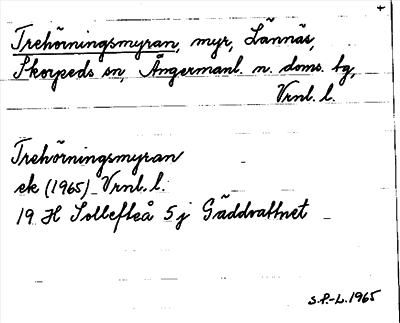 +
Trehörningsmyran, myr, Lännäs,
Skorpeds sn, Ångermanl. n. doms. tg,
Vrnl. l.
Trehörningsmyran
ek (1965) Vrnl. l.
19 H Sollefteå 5j Gäddvattnet
S.P.-L. 1965